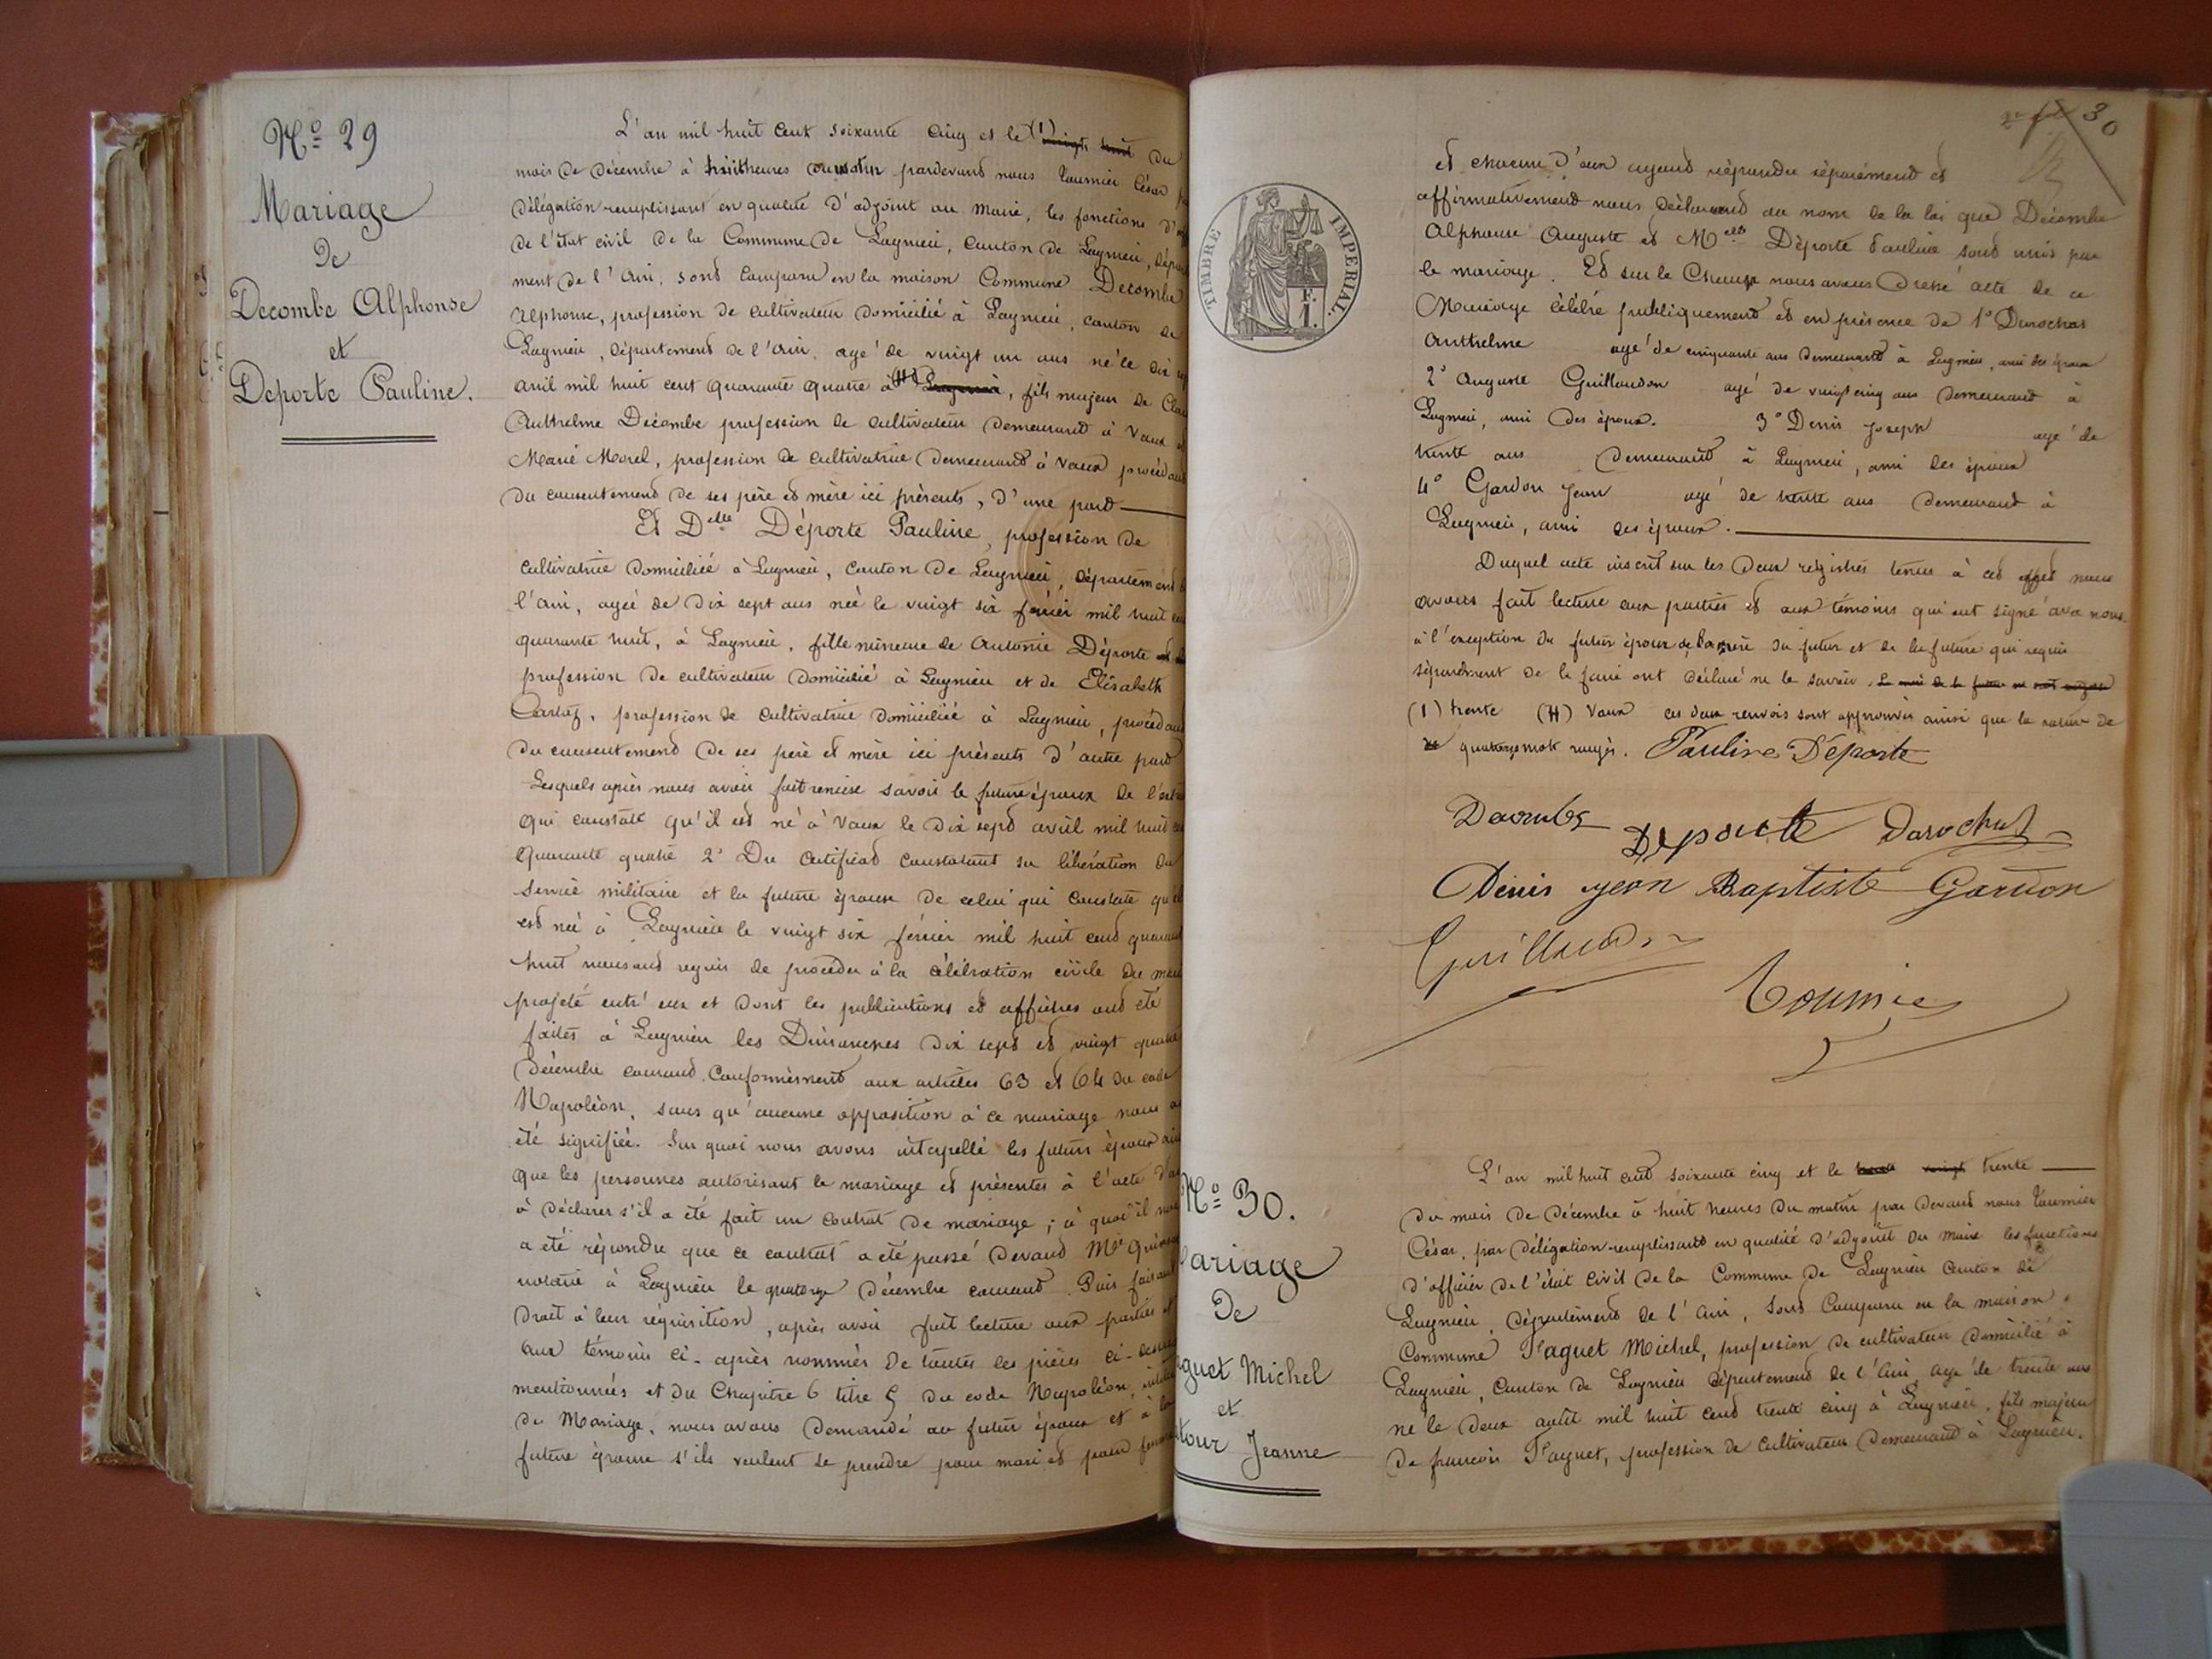 Nº 29
Mariage
De
Decombe Alphonse
et
Deporte Pauline.
L'an mil huit cent soixante cinq et le (1) vingt huit du
mois de décembre à huit heures du matin pardevant nous Tournier César
délégation remplissant en qualité d'adjoint au maire, les fonctions
de l'état civil de la Commune de Lagnieu, Canton de Lagnieu,
ment de l'Ain, sont comparu en la maison Commune Decombe
Alphonse, profession de cultivateur domicilié à Lagnieu, canton de
Lagnieu, département de l'Ain, agé de vingt un ans né le dix
avril mil huit cent quarante quatre à (H) Lagnieu, fils majeur de
Anthelme Décombe profession de cultivateur demeurant à Vaux
Marie Morel, profession de cultivatrice demeurant à Vaux procédant
du consentement de ses père et mère ici présents, d'une part
Et Delle Déporte Pauline, profession de
cultivatrice domiciliée à Lagnieu, canton de Lagnieu, département
l'Ain, agée de dix sept ans née le vingt six février mil huit
quarante huit, à Lagnieu, fille mineure de Antoine Déporte
profession de cultivateur domicilié à Lagnieu et de Elisabeth
profession de cultivatrice domiciliée à Lagnieu, procédant
du consentement de ses père et mère ici présents d'autre part
Lesquels après nous avoir fait remise savoir le future époux de
qui constate qu'il est né à Vaux le dix sept avril mil huit
quarante quatre 2º Du certificat constatant sa libération du
service militaire et la future épouse de celui qui constate
est née à Lagnieu le vingt six février mil huit cent
huit nous ont requis de procéder à la célébration civile du
projeté entr'eux et dont les publications et affiches ont été
faites à Lagnieu les Dimanches dix sept et vingt quatre
décembre courant conformément aux articles 63 et 64 du code
Napoléon, sans qu'aucune opposition à ce mariage nous
été signifiée. Sur quoi nous avons interpellé les futurs époux
que les personnes autorisant le mariage et présentes à l'acte
à déclarer s'il a été fait un contrat de mariage; à quoi il
a été répondu que ce contrat a été passé devant Me
notaire à Lagnieu le quatorze décembre courant. Puis faisant
droit à leur réquisition, après avoir fait lecture aux parties
aux témoins ci-après nommés de toutes les pièces ci-dessus
mentionnées et du Chapitre 6 titre 5 du code Napoléon,
du Mariage, nous avons demandé au futur époux et à la
future épouse s'ils veulent se prendre pour mari et pour
30
et chacun d'eux ayant répondu séparément et
affirmativement nous déclarons au nom de la loi que Décombe
Alphonse Auguste et Melle Déporte Pauline sont unis par
le mariage. Et sur le Champ nous avons dressé acte de ce
Mariage célébré publiquement et en présence de 1º Darochas
Anthelme agé de cinquante ans demeurant à Lagnieu, ami des époux
2º Auguste Guillaudon agé de vingt cinq ans demeurant à
Lagnieu, ami des époux. 3º Denis Joseph agé de
trente ans demeurant à Lagnieu, ami des époux
4º Gardon Jean agé de trente ans demeurant à
Lagnieu, ami des époux.
Duquel acte inscrit sur les deux registres tenus à cet effet nous
avons fait lecture aux parties et aux témoins qui ont signé avec nous
à l'exception du futur époux de la mère du futur et de la future qui requis
séparément de le faire ont déclaré ne le savoir.
(1) trente (H) Vaux ces deux renvois sont approuvés ainsi que la rature de
quatorze mots rayés. Pauline Déporte
Decombe Deporte Darochas
Denis Jean Baptiste Gardon
Guillaudon
Tournier
Nº 30.
ariage
De
guet Michel
et
tour Jeanne
L'an mil huit cent soixante cinq et le vingt trente
du mois de décembre à huit heures du matin par devant nous Tournier
César, par délégation remplissant en qualité d'adjoint du maire les fonctions
d'officier de l'état civil de la Commune de Lagnieu Canton de
Lagnieu, département de l'Ain, sont comparu en la maison
Commune Paquet Michel, profession de cultivateur domicilié à
Lagnieu, Canton de Lagnieu département de l'Ain, agé de trente ans
né le deux août mil huit cent trente cinq à Lagnieu, fils majeur
de françois Paquet, profession de cultivateur demeurant à Lagnieu.
TIMBRE IMPERIAL.
F.
1.